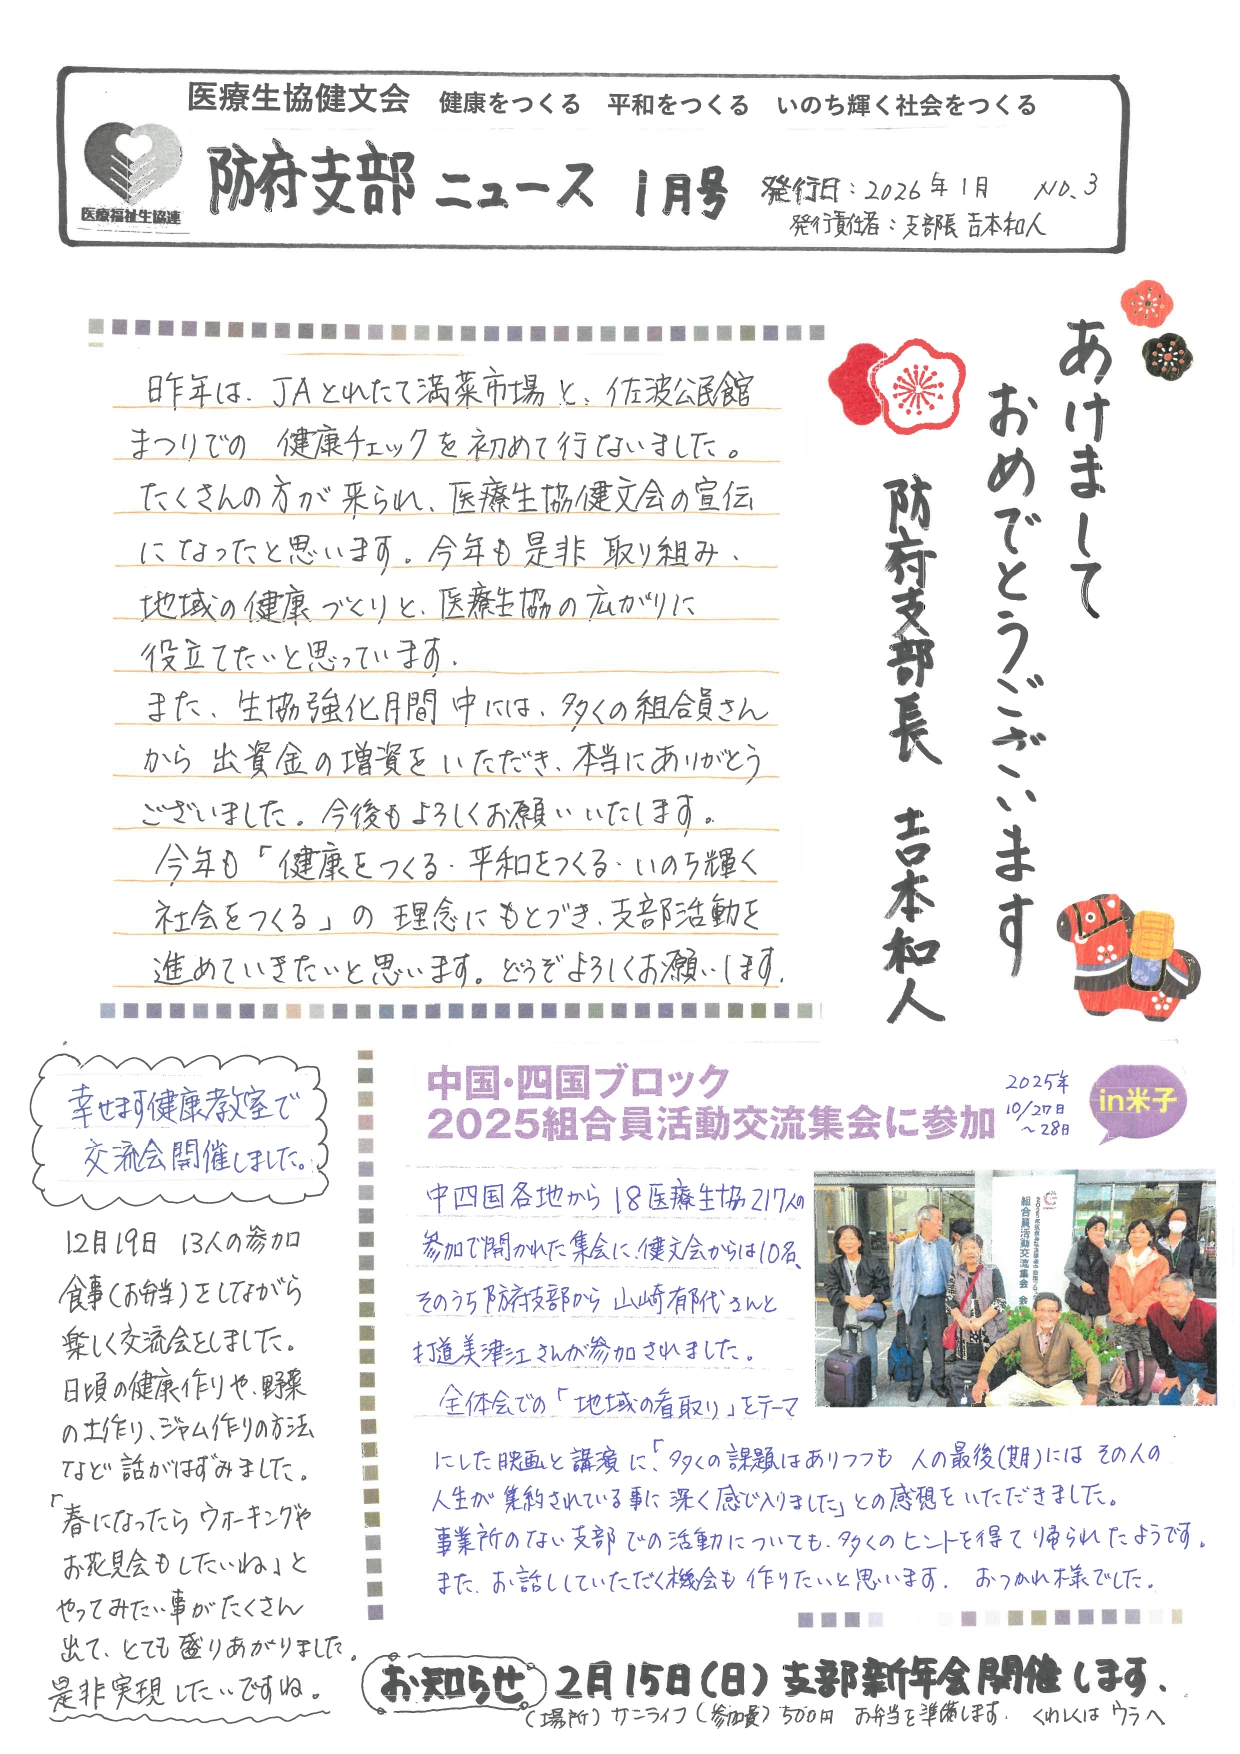 医療生協健文会 健康をつくる 平和をつくる いのち輝く社会をつくる
医療福祉生協連
防府支部 ニュース 1月号 発行日：2026年1月 NO.3
発行責任者：支部長 吉本和人
あけまして
おめでとうございます
防府支部長 吉本和人
昨年は、JAとれたて満菜市場と、佐波公民館
まつりでの 健康チェックを初めて行ないました。
たくさんの方が来られ、医療生協健文会の宣伝
になったと思います。今年も是非取り組み、
地域の健康づくりと、医療生協の広がりに
役立てたいと思っています。
また、生協強化月間中には、多くの組合員さん
から出資金の増資をいただき、本当にありがとう
ございました。今後もよろしくお願いいたします。
今年も「健康をつくる・平和をつくる・いのち輝く
社会をつくる」の理念にもとづき、支部活動を
進めていきたいと思います。どうぞよろしくお願いします。
幸せます健康教室で
交流会開催しました。
12月19日 13人の参加
食事（お弁当）をしながら
楽しく交流会をしました。
日頃の健康作りや、野菜
の土作り、ジャム作りの方法
など話がはずみました。
「春になったらウォーキングや
お花見会もしたいね」と
やってみたい事がたくさん
出て、とても盛りあがりました。
是非実現したいですね。
中国・四国ブロック
2025組合員活動交流集会に参加
2025年
10/27日
～28日
in米子
中四国各地から18医療生協217人の
参加で開かれた集会に、健文会からは10名、
そのうち防府支部から山崎郁代さんと
打道美津江さんが参加されました。
全体会での「地域の看取り」をテーマ
にした映画と講演に、「多くの課題はありつつも 人の最後(期)にはその人の
人生が集約されている事に深く感じ入りました」との感想をいただきました。
事業所のない支部での活動についても、多くのヒントを得て帰られたようです。
また、お話ししていただく機会も作りたいと思います。 おつかれ様でした。
2025組合員活動交流集会
お知らせ 2月15日（日）支部新年会開催します。
（場所）サンライフ（参加費）500円 お弁当を準備します。 くわしくはウラへ